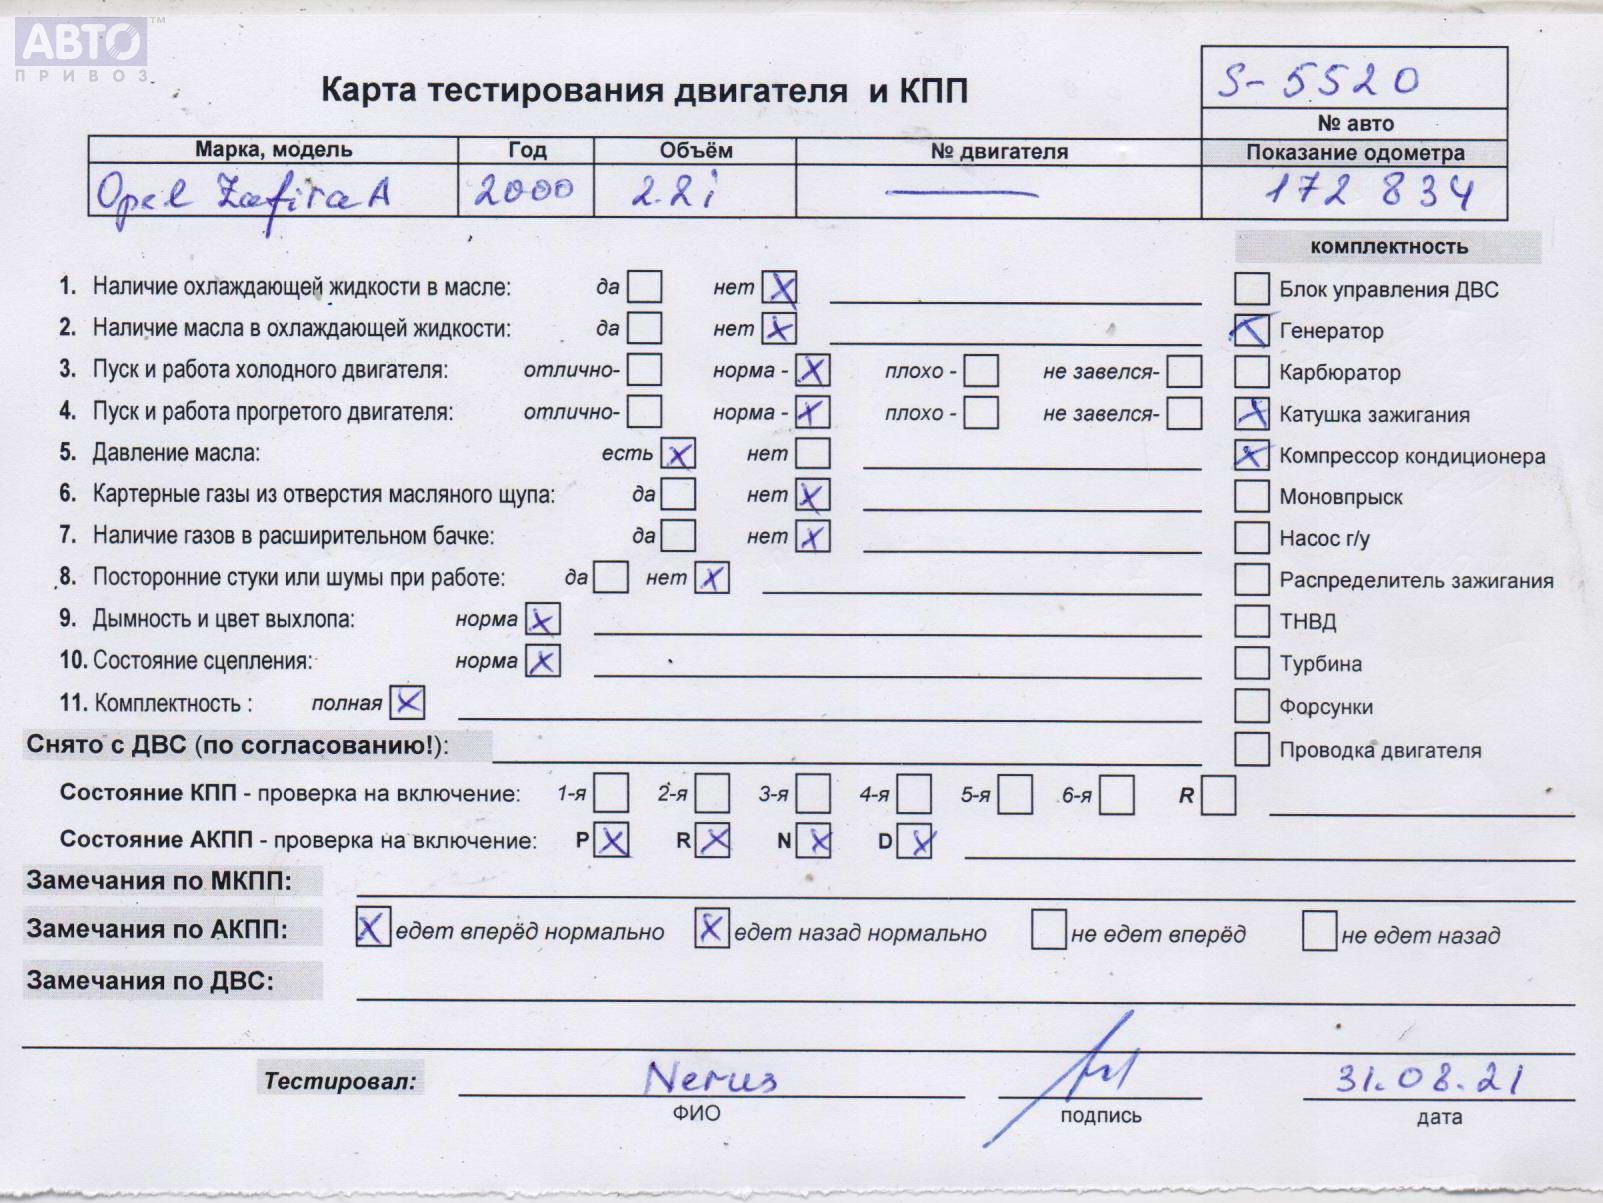 АВТО™
ПРИВОЗ
Карта тестирования двигателя и КПП
S-5520
№ авто
Марка, модель Год Объём № двигателя Показание одометра
Opel Zafira A 2000 2.2i — 172 834
комплектность
1. Наличие охлаждающей жидкости в масле: да нет X Блок управления ДВС
2. Наличие масла в охлаждающей жидкости: да нет X X Генератор
3. Пуск и работа холодного двигателя: отлично- норма - X плохо - не завелся- Карбюратор
4. Пуск и работа прогретого двигателя: отлично- норма - X плохо - не завелся- X Катушка зажигания
5. Давление масла: есть X нет X Компрессор кондиционера
6. Картерные газы из отверстия масляного щупа: да нет X Моновпрыск
7. Наличие газов в расширительном бачке: да нет X Насос г/у
8. Посторонние стуки или шумы при работе: да нет X Распределитель зажигания
9. Дымность и цвет выхлопа: норма X ТНВД
10. Состояние сцепления: норма X Турбина
11. Комплектность : полная X Форсунки
Снято с ДВС (по согласованию!): Проводка двигателя
Состояние КПП - проверка на включение: 1-я 2-я 3-я 4-я 5-я 6-я R
Состояние АКПП - проверка на включение: P X R X N X D X
Замечания по МКПП:
Замечания по АКПП: X едет вперёд нормально X едет назад нормально не едет вперёд не едет назад
Замечания по ДВС:
Тестировал: Nerus 31.08.21
ФИО подпись дата